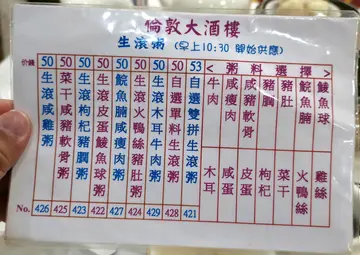 倫敦大酒樓
生滾粥 (早上10:30開始供應)
价錢 50 50 50 50 50 50 50 50 53
生滾咸雞粥
菜干咸豬軟骨粥
生滾枸杞豬膶粥
生滾皮蛋鯪魚球粥
鯇魚腩咸瘦肉粥
生滾火鴨絲豬肚粥
生滾木耳牛肉粥
自選單料生滾粥
自選雙拼生滾粥
<粥料選擇>
牛肉
咸瘦肉
咸豬軟骨
豬膶
豬肚
鯇魚腩
鯪魚球
木耳
咸蛋
皮蛋
枸杞
菜干
火鴨絲
雞絲
No. 426 425 423 422 427 424 429 428 421